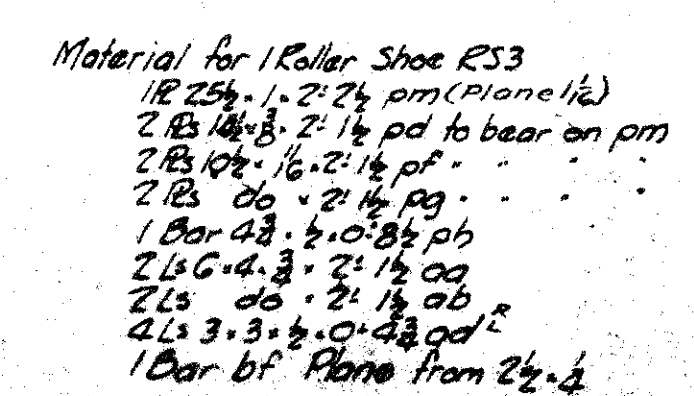 Material for 1 Roller Shoe RS3
1 Pl 25½ × 1 × 2'- 2½ pm (Plane 1 1/16)
2 Pls 18½ × ⅜ × 2'- 1½ pd to bear on pm
2 Pls 10½ × 1/16 × 2'- 1½ pf " " " "
2 Pls do × 2'- 1½ pg " " " "
1 Bar 4¾ × ½ × 0'- 8½ ph
2 Ls 6 × 4 × ¾ × 2'- 1½ aa
2 Ls do × 2'- 1½ ab
4 Ls 3 × 3 × ½ × 0'- 4¾ ad R L
1 Bar bf Plane from 2½ × ¼